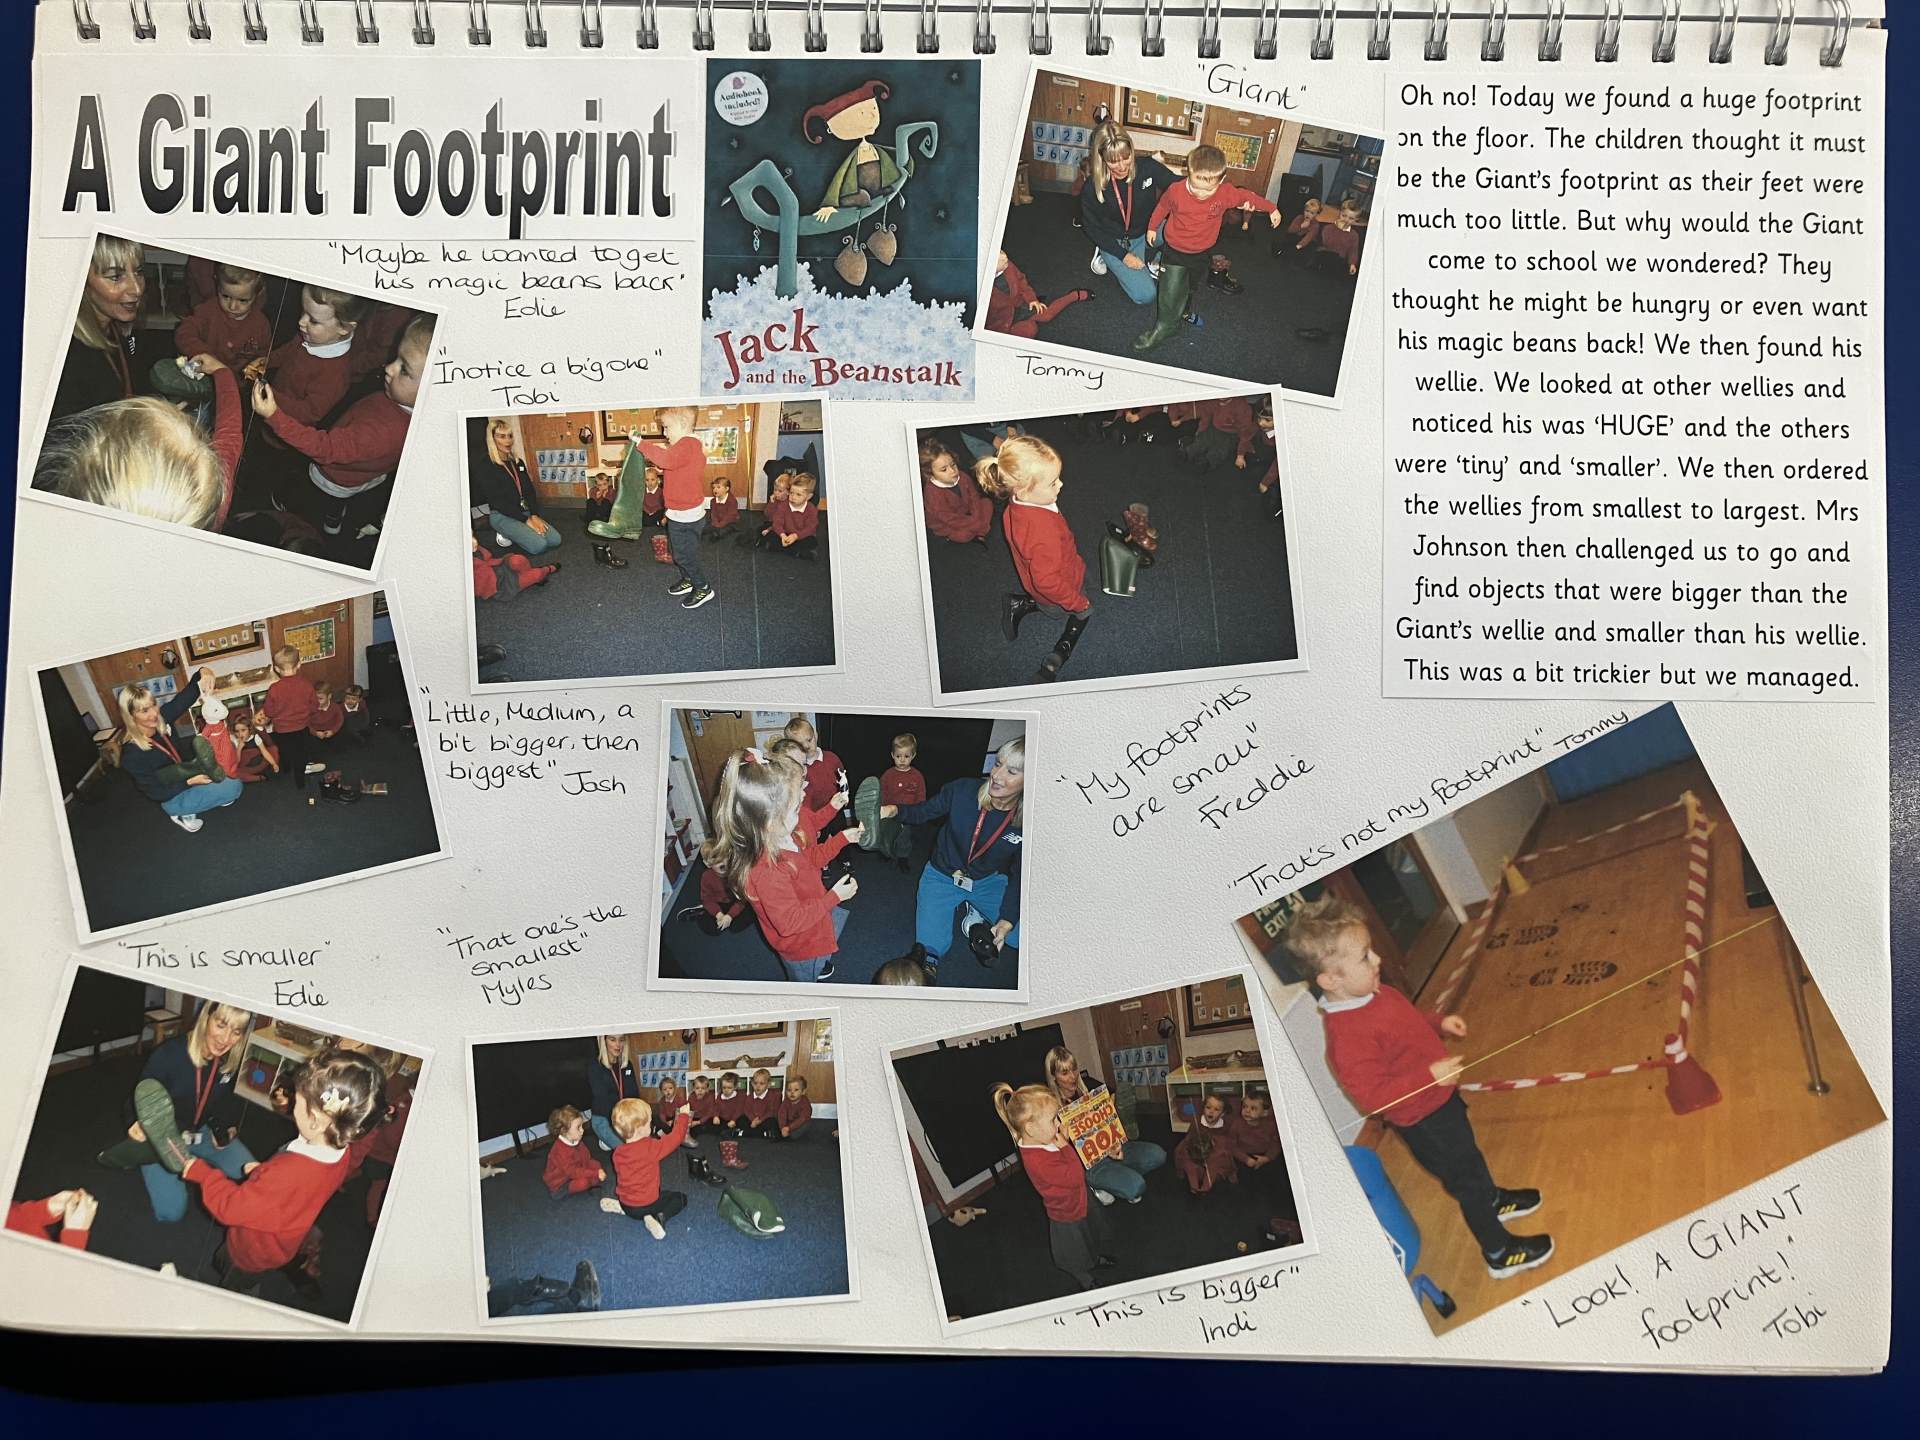 A Giant Footprint
"Maybe he wanted to get
his magic beans back"
Edie
"I notice a big one"
Tobi
Audiobook
included!
Jack
and the Beanstalk
"Giant"
Tommy
Oh no! Today we found a huge footprint
on the floor. The children thought it must
be the Giant's footprint as their feet were
much too little. But why would the Giant
come to school we wondered? They
thought he might be hungry or even want
his magic beans back! We then found his
wellie. We looked at other wellies and
noticed his was 'HUGE' and the others
were 'tiny' and 'smaller'. We then ordered
the wellies from smallest to largest. Mrs
Johnson then challenged us to go and
find objects that were bigger than the
Giant's wellie and smaller than his wellie.
This was a bit trickier but we managed.
"Little, Medium, a
bit bigger, then
biggest" Josh
"My footprints
are small"
Freddie
"That's not my footprint" Tommy
"This is smaller"
Edie
"That one's the
smallest"
Myles
"This is bigger"
Indi
"Look! A GIANT
footprint!"
Tobi
0 1 2 3
5 6 7
0 1 2 3 4
5 6 7 8 9
0 1 2 3 4
5 6 7
NB
YOU
CHOOSE
FIRE
EXIT